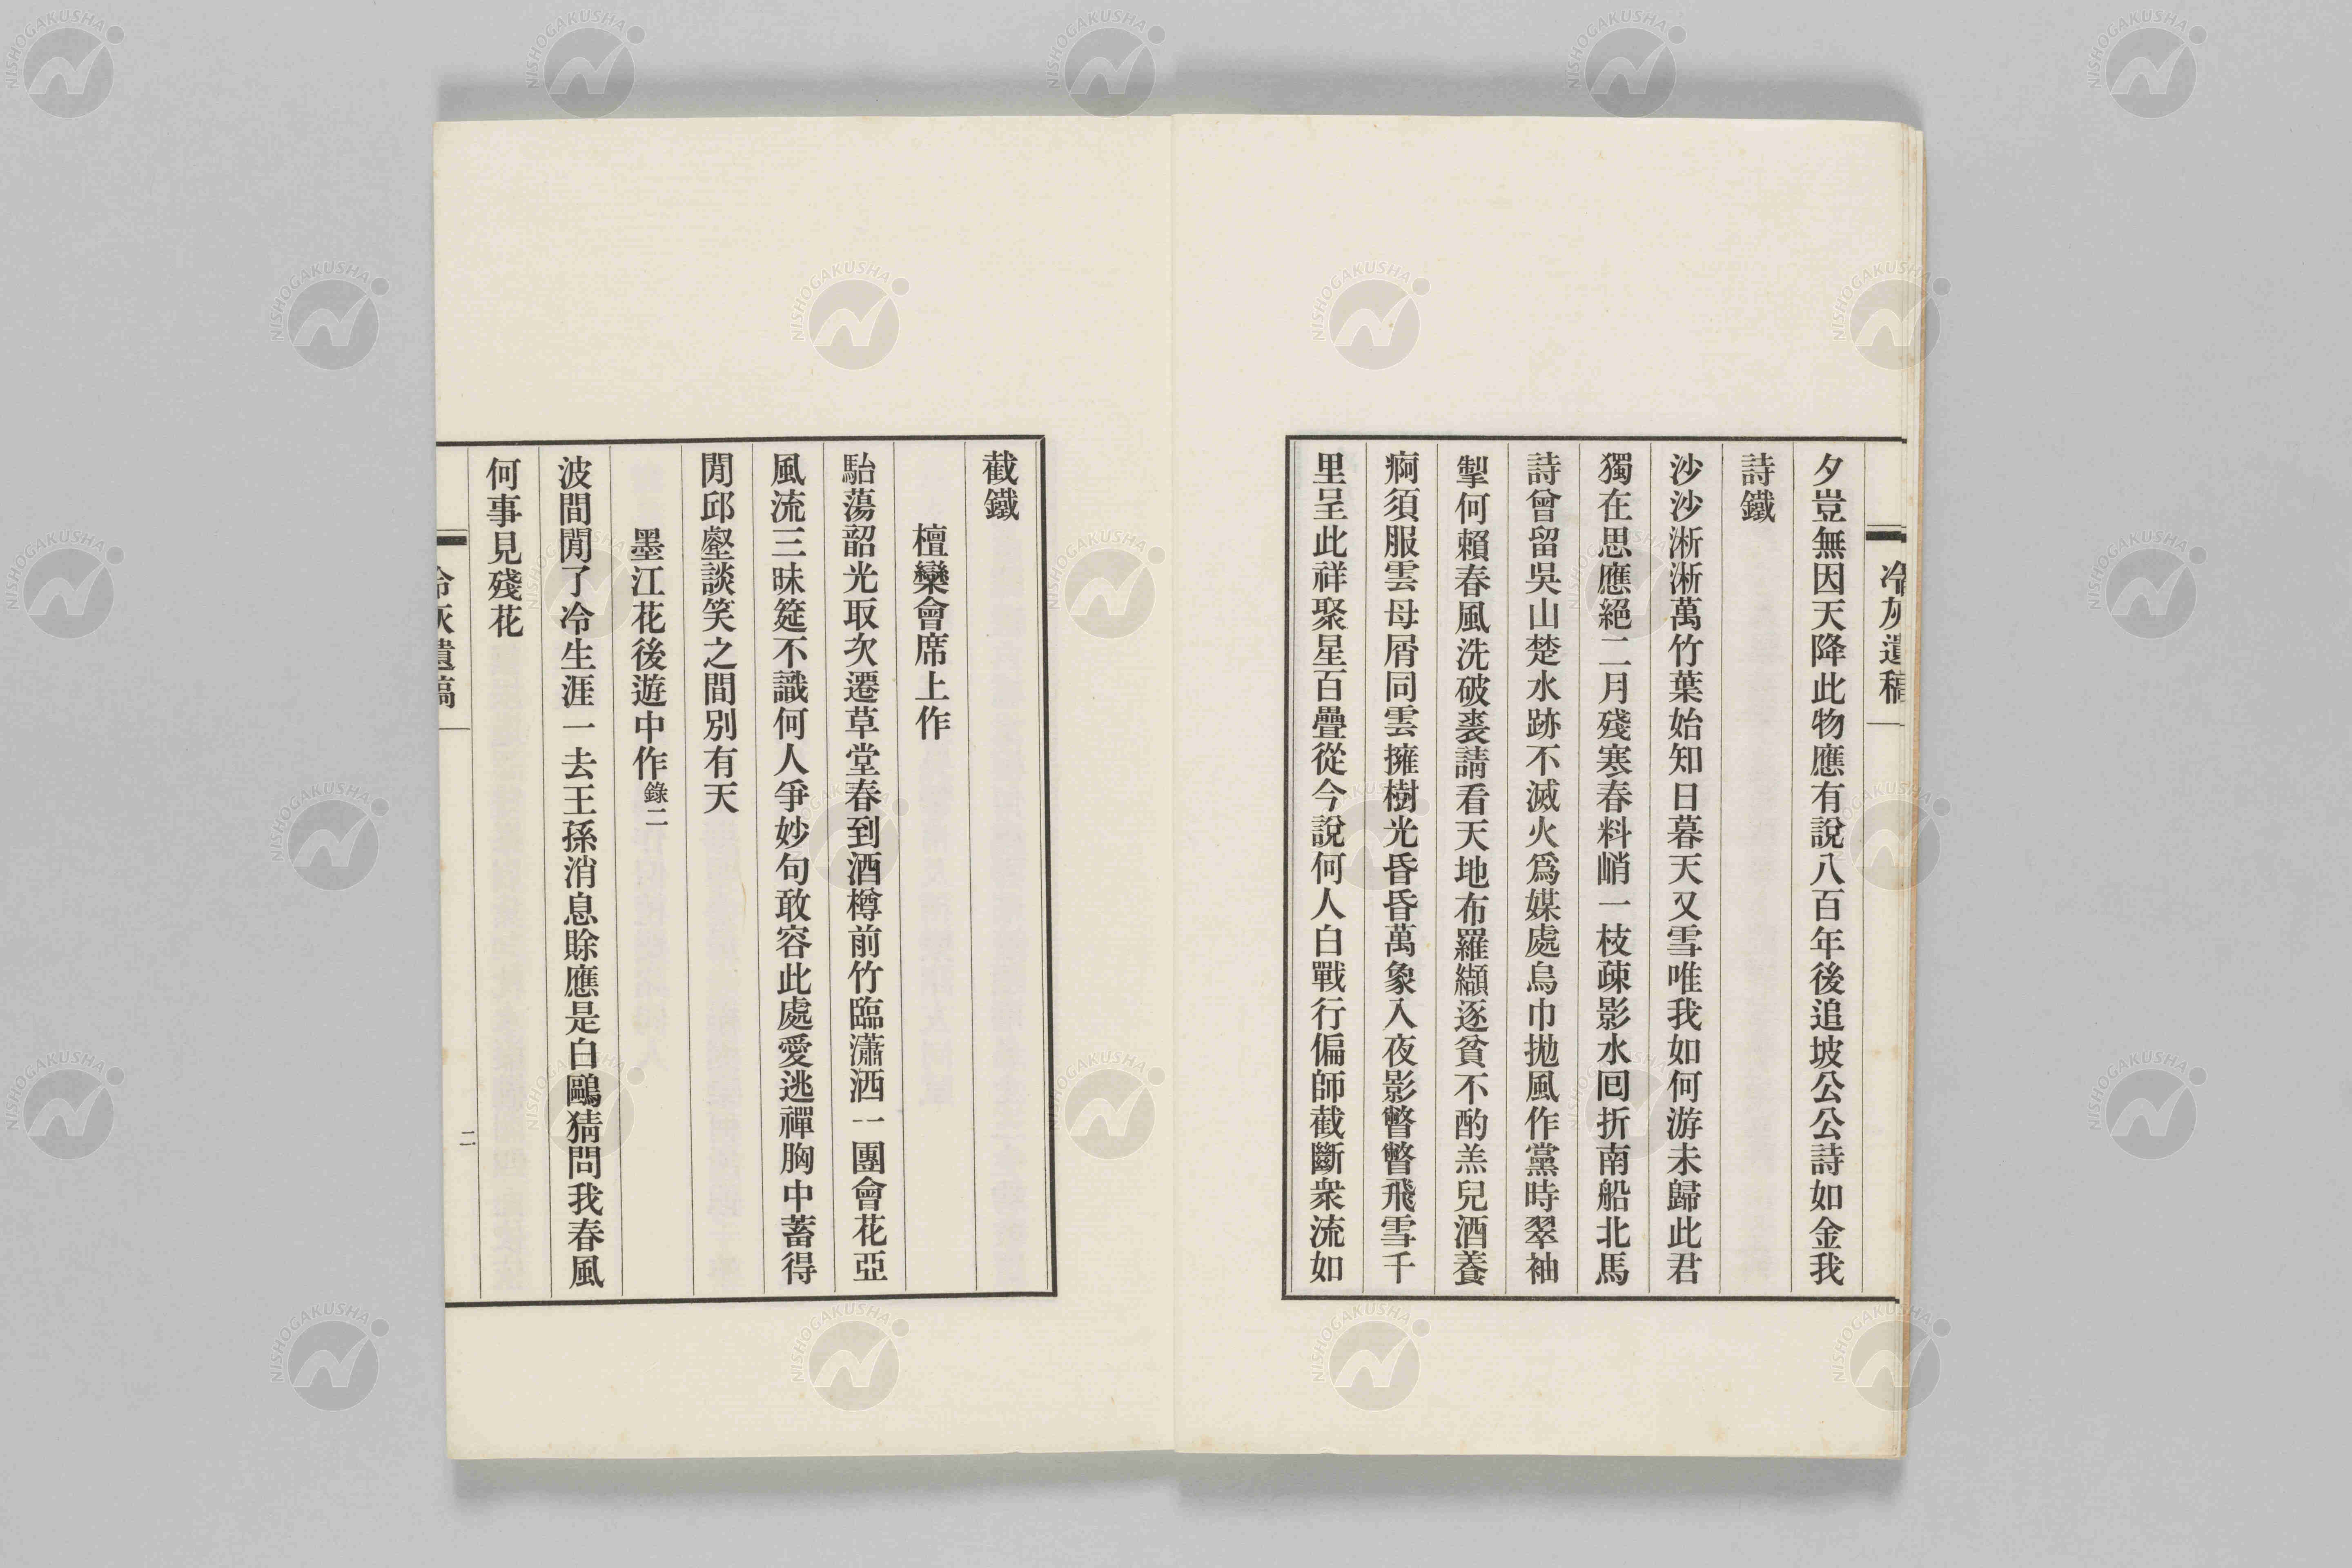 冷灰遺稿
夕豈無因天降此物應有說八百年後追坡公公詩如金我
詩鐵
沙沙淅淅萬竹葉始知日暮天又雪唯我如何游未歸此君
獨在思應絕二月殘寒春料峭一枝疎影水囘折南船北馬
詩曾留吳山楚水跡不滅火爲媒處烏巾拋風作黨時翠袖
掣何賴春風洗破裘請看天地布羅纈逐貧不酌羔兒酒養
痾須服雲母屑同雲擁樹光昏昏萬象入夜影瞥瞥飛雪千
里呈此祥聚星百疊從今說何人白戰行偏師截斷衆流如
截鐵
檀欒會席上作
駘蕩韶光取次遷草堂春到酒樽前竹臨瀟洒一團會花亞
風流三昧筵不識何人爭妙句敢容此處愛逃禪胸中蓄得
閒邱壑談笑之間別有天
墨江花後遊中作錄二
波間閒了冷生涯一去王孫消息賒應是白鷗猜問我春風
何事見殘花
冷灰遺稿
二
NISHOGAKUSHA